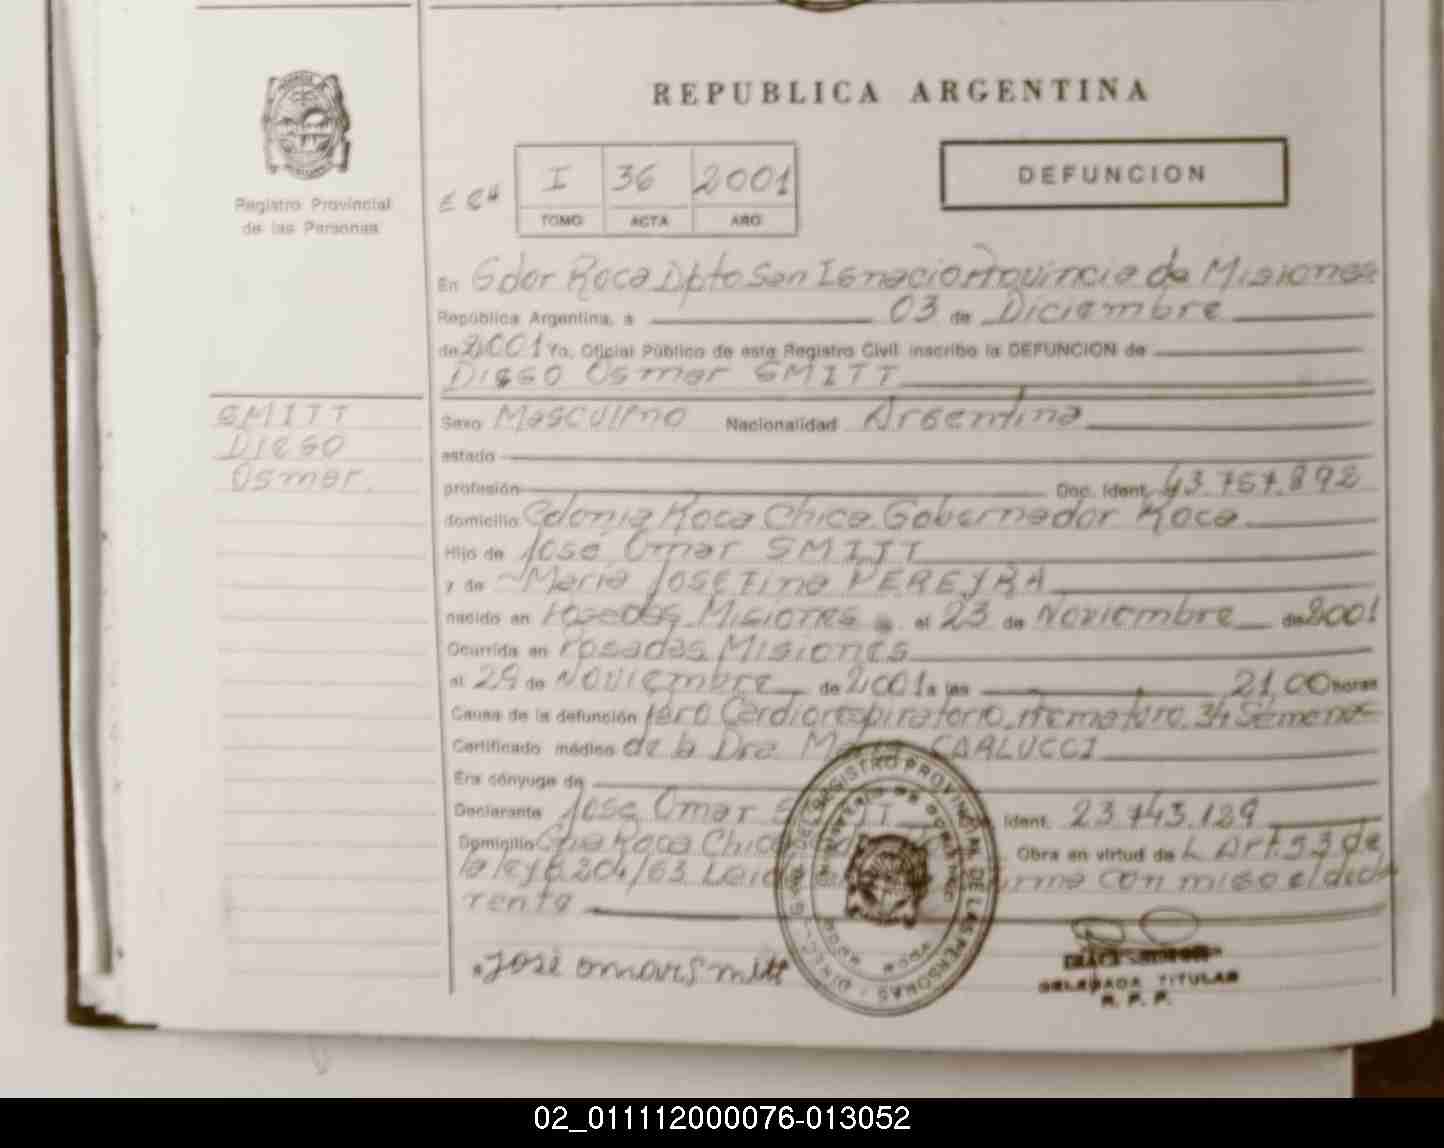 REPUBLICA ARGENTINA
Registro Provincial
de las Personas
I 36 2001
TOMO ACTA AÑO
DEFUNCION
En Gdor Roca Dpto San Ignacio Provincia de Misiones
República Argentina, a 03 de Diciembre
de 2001 Yo, Oficial Público de este Registro Civil inscribo la DEFUNCION de
Diego Osmar SMITT
SMITT
Diego
Osmar.
Sexo Masculino Nacionalidad Argentina
estado
profesión Doc. Ident. 43.757.892
domicilio Colonia Roca Chica Gobernador Roca
Hijo de Jose Omar SMITT
y de Maria Josefina PEREYRA
nacido en Posadas Misiones el 23 de Noviembre de 2001
Ocurrida en Posadas Misiones
el 29 de Noviembre de 2001 a las 21,00 horas
Causa de la defunción Paro Cardiorespiratorio, Prematuro 34 Semanas
Certificado médico de la Dra. CARLUCCI
Era cónyuge de
Declarante Jose Omar Ident. 23.743.129
Domicilio Roca Chica Obra en virtud de L Art 93 de
la ley 6204/63 Leida firma con migo el decla
rante
Jose omar Smitt
DELEGADA TITULAR
R. P. P.
02_011112000076-013052